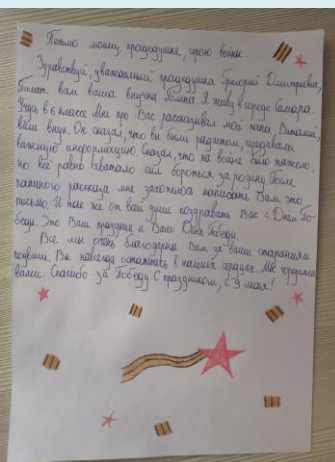 Письмо моему прадедушке, герою войны
Здравствуй, уважаемый прадедушка Григорий Дмитриевич,
Пишет вам ваша внучка Полина. Я живу в городе Самара.
Учусь в 6 классе. Мне про Вас рассказывал мой папа, Виталий,
ваш внук. Он сказал, что вы были радистом, передавали
важную информацию. Сказал, что на войне было тяжело,
но всё равно хватало сил бороться за родину. После
папиного рассказа мне захотелось написать Вам это
письмо. И так же от всей души поздравить Вас с Днём По-
беды. Это Ваш праздник и Ваш День Победы.
Все мы очень благодарны Вам за ваши старания и
подвиги. Вы навсегда останетесь в наших сердцах. Мы гордимся
вами. Спасибо за Победу. С праздником, с 9 мая!